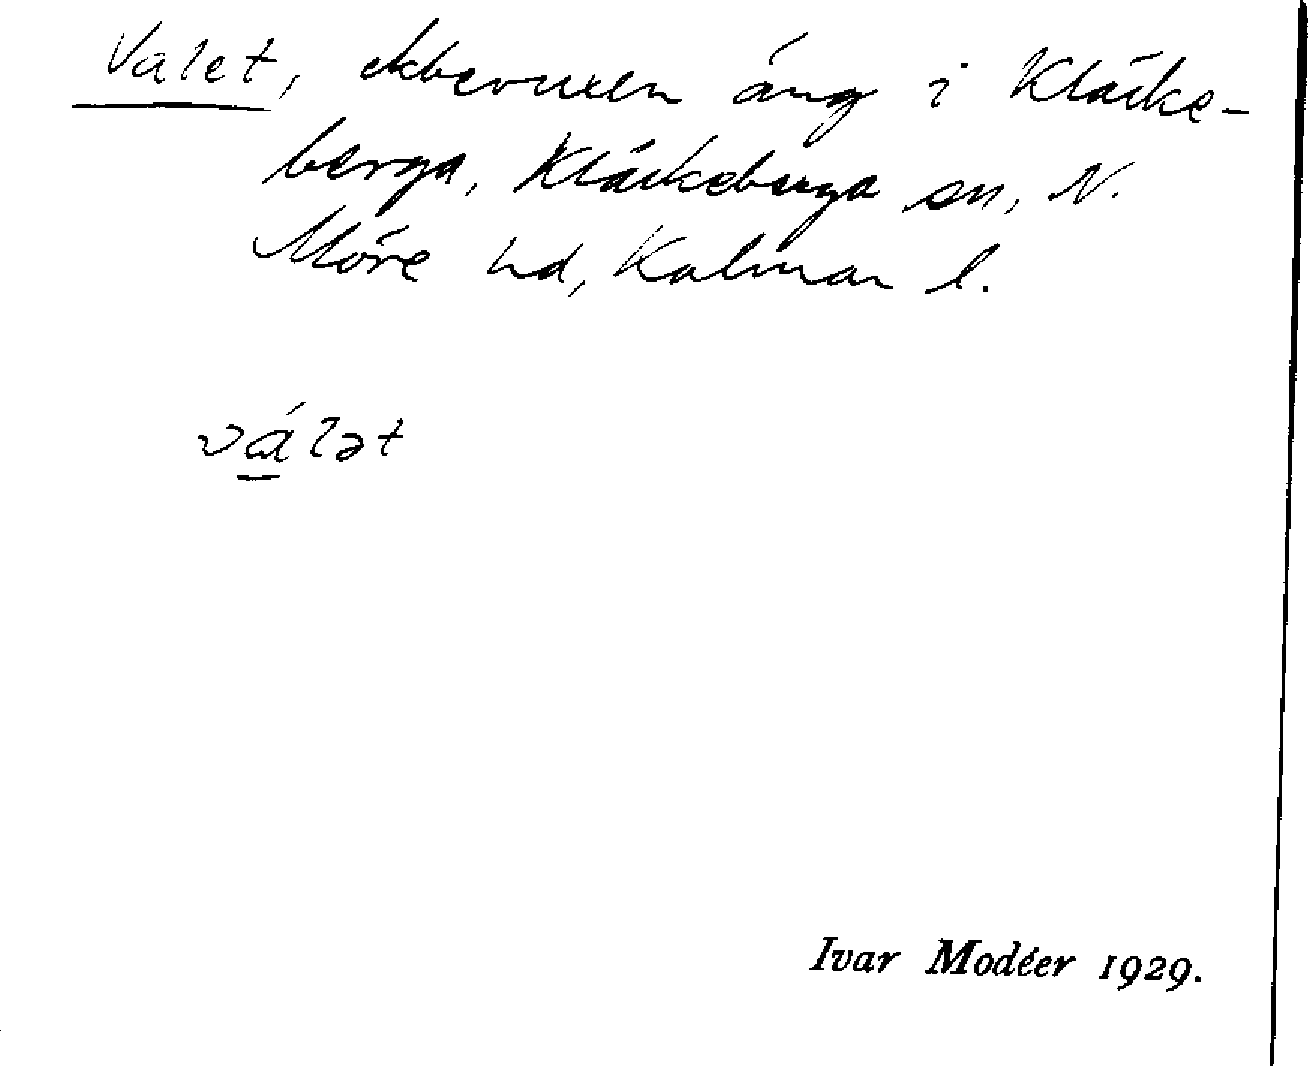 Valet, ekbevuxen äng i Kläcke-
berga, Kläckeberga sn, N.
Möre hd, Kalmar l.
válət
Ivar Modéer 1929.